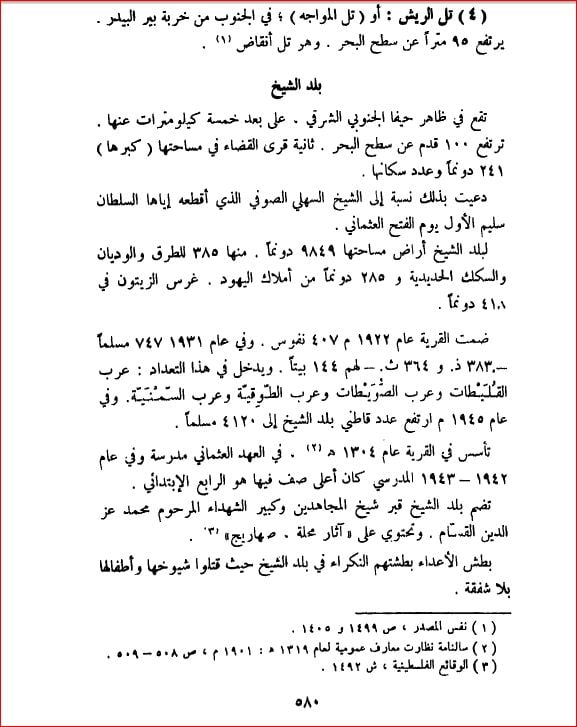 (٤) تل الريش : أو ( تل المواجه ) ؛ في الجنوب من خربة بير البيدر .
يرتفع ٩٥ متراً عن سطح البحر . وهو تل أنقاض (١) .
بلد الشيخ
تقع في ظاهر حيفا الجنوبي الشرقي . على بعد خمسة كيلومترات عنها .
ترتفع ١٠٠ قدم عن سطح البحر . ثانية قرى القضاء في مساحتها ( كبرها )
٢٤١ دونماً وعدد سكانها .
دعيت بذلك نسبة إلى الشيخ السهلي الصوفي الذي أقطعه إياها السلطان
سليم الأول يوم الفتح العثماني .
لبلد الشيخ أراض مساحتها ٩٨٤٩ دونماً . منها ٣٨٥ للطرق والوديان
والسكك الحديدية و ٢٨٥ دونماً من أملاك اليهود . غرس الزيتون في
٤١٨ دونماً .
ضمت القرية عام ١٩٢٢ م ٤٠٧ نفوس . وفي عام ١٩٣١ ٧٤٧ مسلماً
–٣٨٣ ذ. و ٣٦٤ ث. – لهم ١٤٤ بيتاً . ويدخل في هذا التعداد : عرب
القُلَيْطات وعرب الصُّوَيْطات وعرب الطَّوقِيَّة وعرب السَّمْنِيَّة. وفي
عام ١٩٤٥ م ارتفع عدد قاطني بلد الشيخ إلى ٤١٢٠ مسلماً .
تأسس في القرية عام ١٣٠٤ ﻫ (٢) . في العهد العثماني مدرسة وفي عام
١٩٤٢ – ١٩٤٣ المدرسي كان أعلى صف فيها هو الرابع الإبتدائي .
تضم بلد الشيخ قبر شيخ المجاهدين وكبير الشهداء المرحوم محمد عز
الدين القسّام . وتحتوي على « آثار محلة . صهاريج» (٣) .
بطش الأعداء بطشتهم النكراء في بلد الشيخ حيث قتلوا شيوخها وأطفالها
بلا شفقة .
(١) نفس المصدر ، ص ١٤٩٩ و ١٤٠٥ .
(٢) سالنامة نظارت معارف عمومية لعام ١٣١٩ ﻫ : ١٩٠١ م ، ص ٥٠٨ – ٥٠٩ .
(٣) الوقائع الفلسطينية ، ش ١٤٩٢ .
٥٨٠